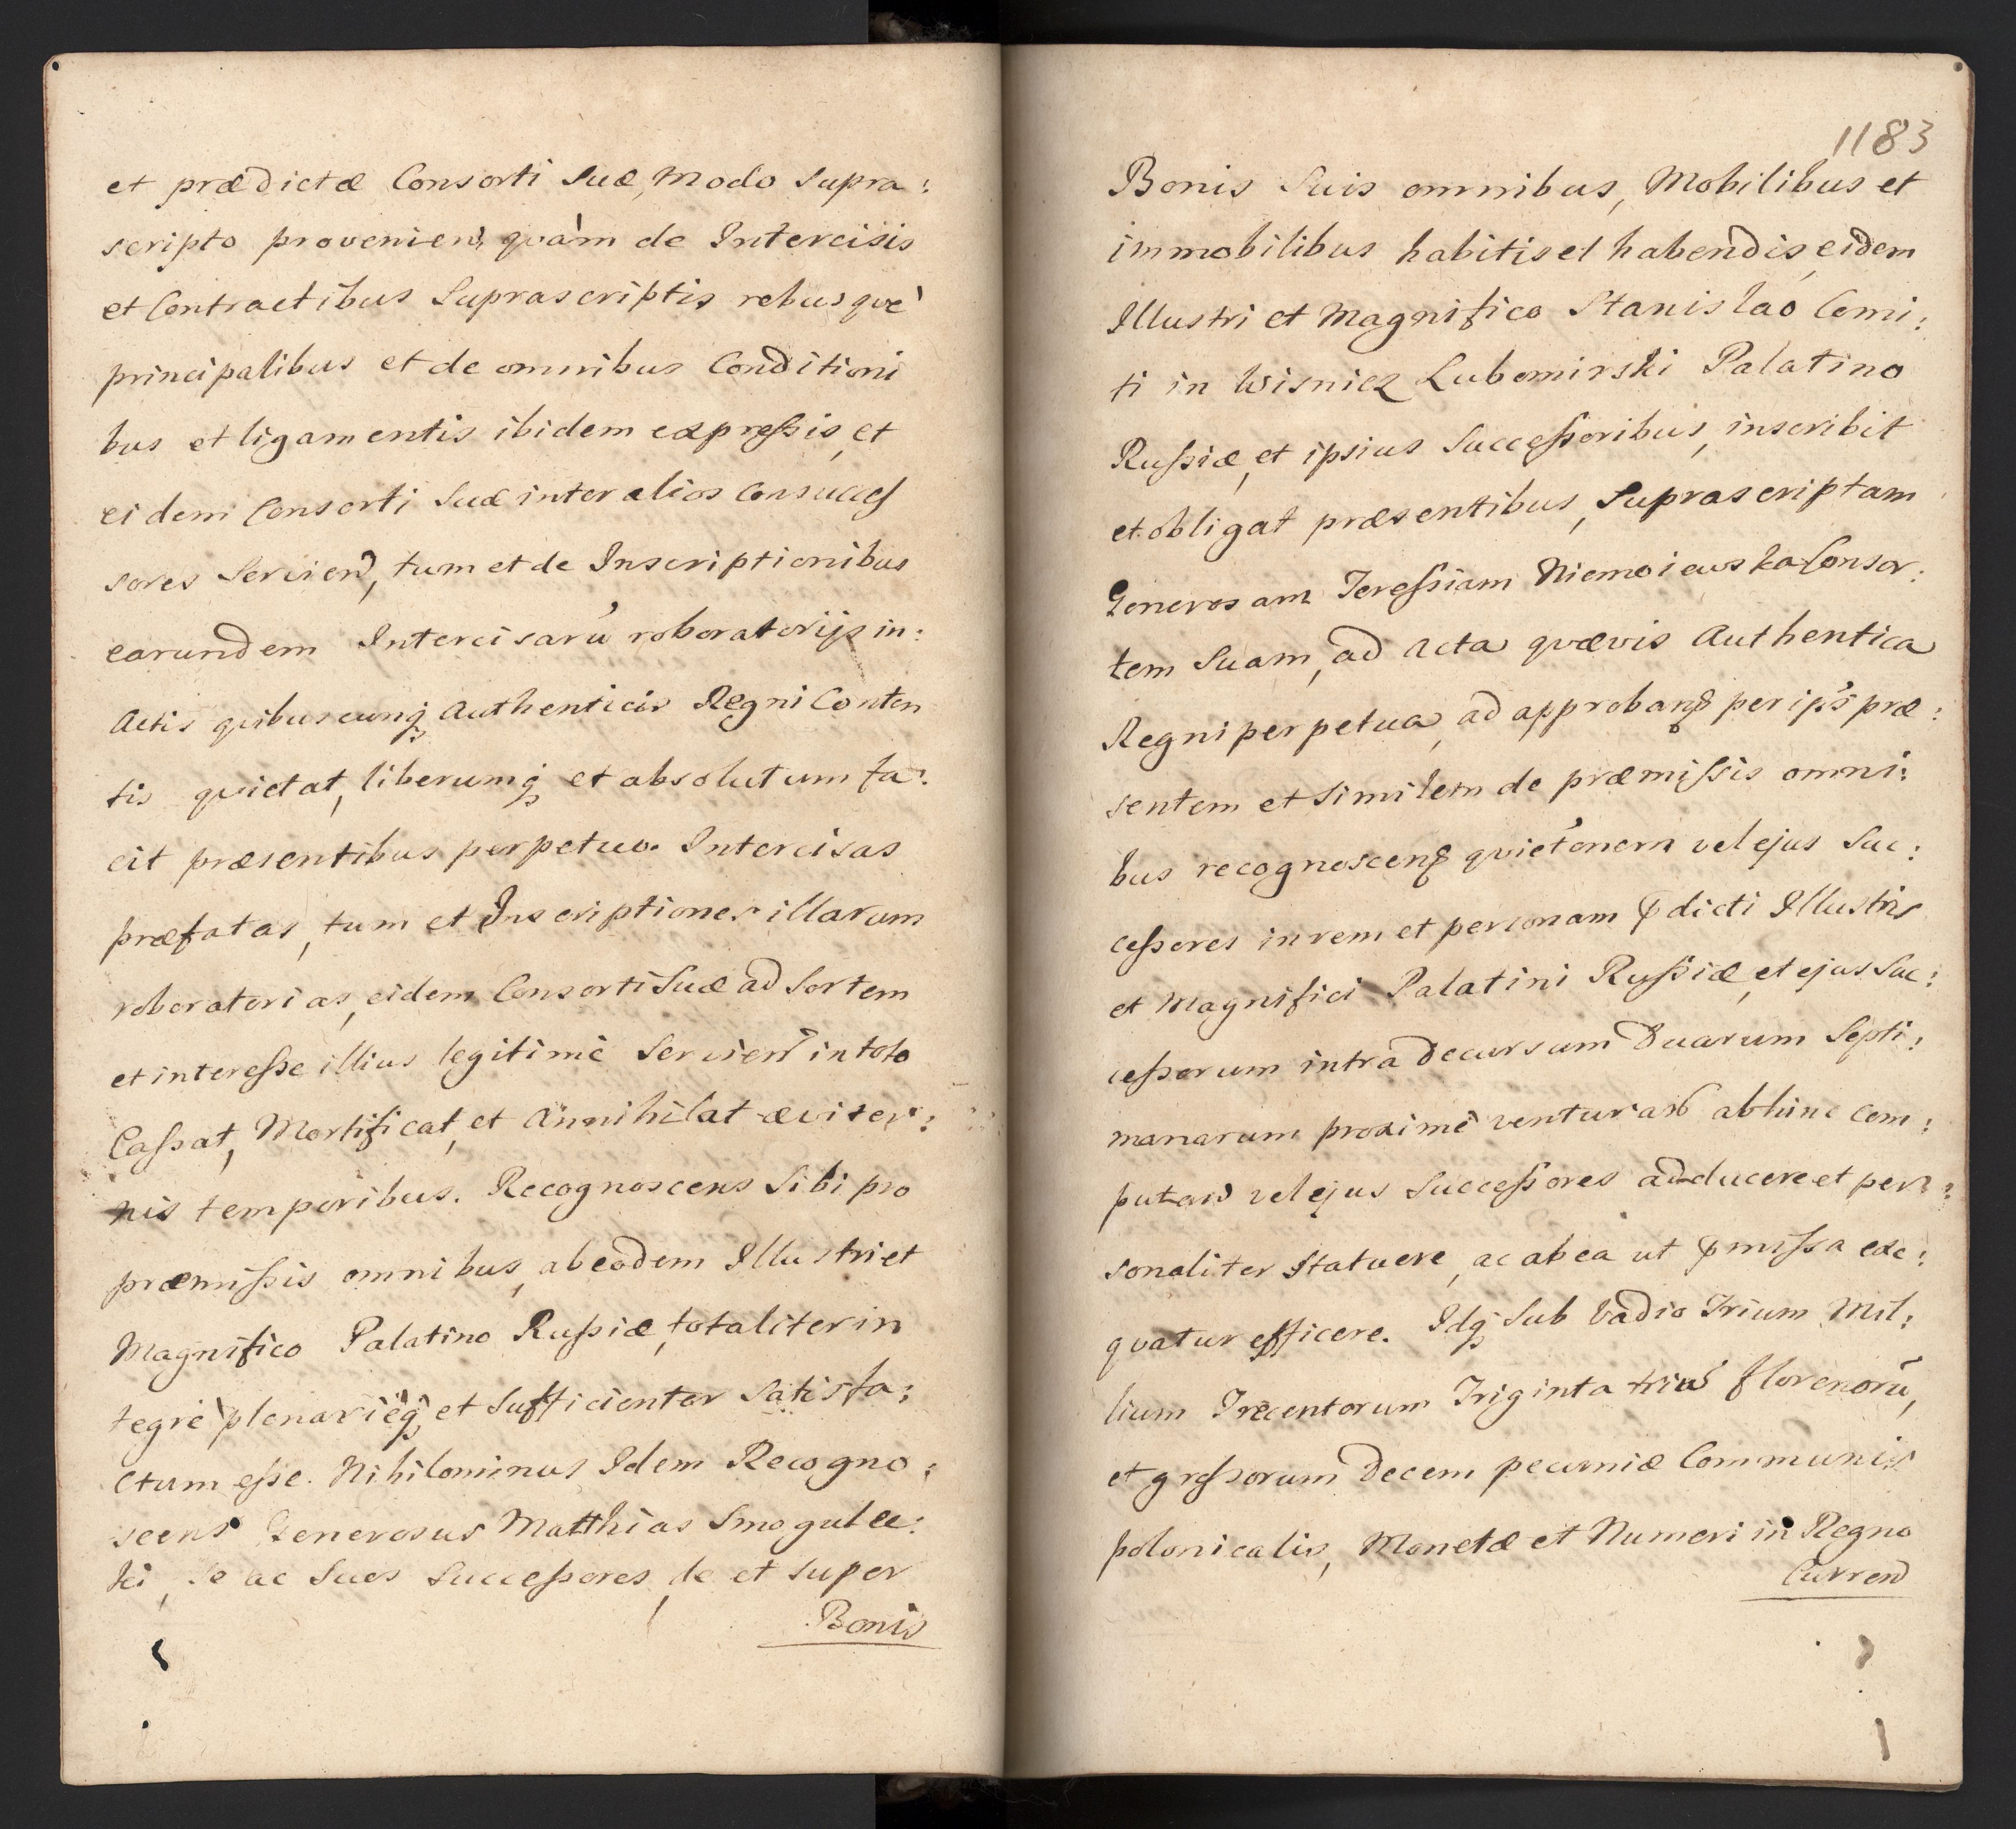 et prædictæ Consorti Suæ, Modo Supra:
scripto provenien, quàm de Intercisis
et Contractibus Suprascriptis rebusquè
principalibus et de omnibus Conditioni
bus et ligamentis ibidem expreſsis, et
eidem Consorti Suæ inter alios Consucceſ
sores Servien, tum et de Inscriptionibus
earundem Intercisarũ roboratorijs in:
Actis quibuscunq Authenticis Regni Conten
tis quietat, liberumq et absolutum fa:
cit præsentibus perpetuo. Intercisas
præfatas, tum et Inscriptiones illarum
roboratorias, eidem Consorti Suæ ad Sortem
et intereſse illius legitimè Servien in toto
Caſsat, Mortificat, et Annihilat æviter:
nis temporibus. Recognoscens Sibi pro
præmiſsis omnibus, ab eodem Illustri et
Magnifico Palatino Ruſsiæ, totaliter in
tegrè plenarièq, et Sufficienter Satisfa:
ctum eſse. Nihilominus Idem Recogno:
scens Generosus Matthias Smogulec:
ki, Se ac Suos Succeſsores, de et Super
Bonis
1183
Bonis Suis omnibus, Mobilibus et
immobilibus habitis et habendis, eidem
Illustri et Magnifico Stanislao Comi:
ti in Wisnicz Lubomirski Palatino
Ruſsiæ, et ipsius Succeſsoribus, inscribit
et obligat præsentibus, Suprascriptam
Generosam Tereſsiam Niemoiewska Consor:
tem Suam, ad Acta quævis Authentica
Regni perpetua, ad approband per ips̃ præ:
sentem et Similem de præmiſsis omni:
bus recognoscend quietõnem vel ejus Suc:
ceſsores in rem et personam p̱dicti Illustris
et Magnifici Palatini Ruſsiæ, et ejus Suc:
ceſsorum intra decursum Duarum Septi:
manarum proximè venturar abhinc com:
putan vel ejus Succeſsores adducere et per:
sonaliter Statuere, ac ab ea ut p̱miſsa exe:
quatur efficere. Idq Sub Vadio Trium Mil:
lium Trecentorum Triginta trium florenorũ,
et groſsorum Decem pecuniæ Communis
polonicalis, Monetæ et Numeri in Regno
Curren